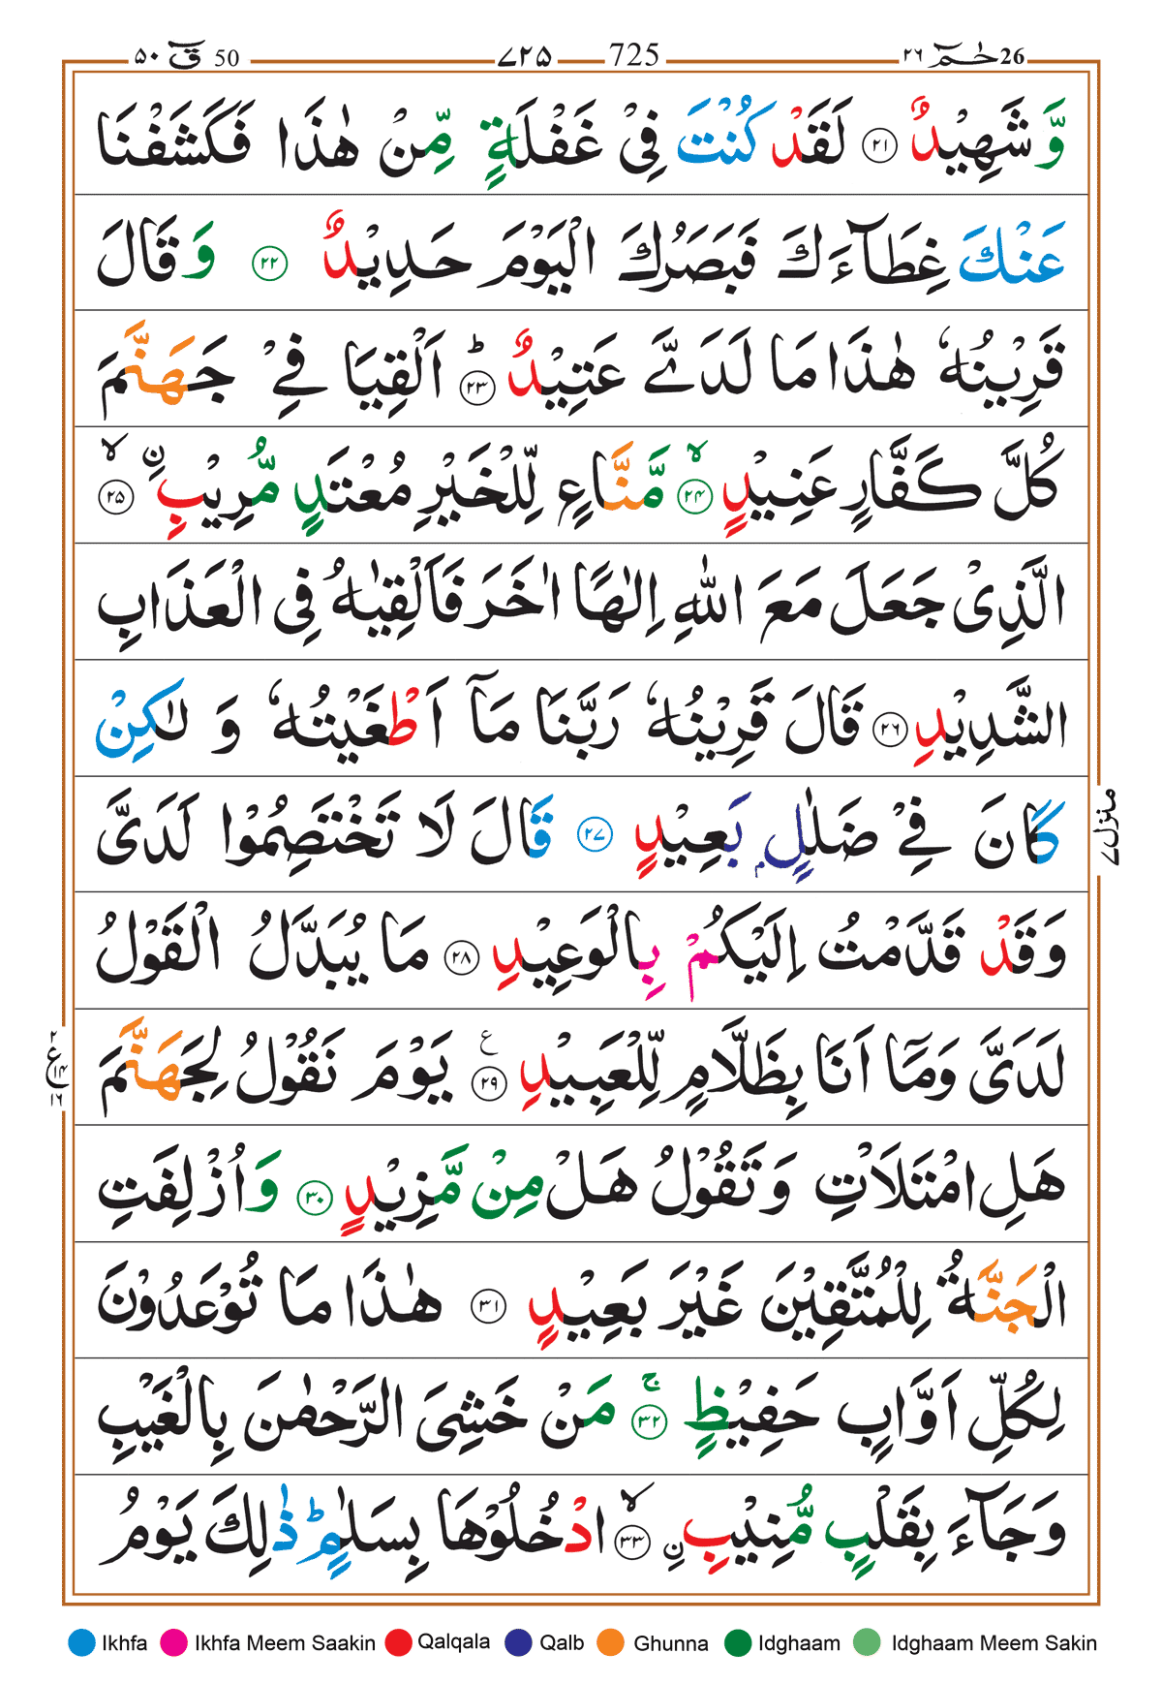 ۵۰ قٓ 50 ۷۲۵ 725 ۲۶ حٰمٓ 26
وَّ شَهِيْدٌ ۲۱ لَقَدْ كُنْتَ فِيْ غَفْلَةٍ مِّنْ هٰذَا فَكَشَفْنَا
عَنْكَ غِطَآءَكَ فَبَصَرُكَ الْيَوْمَ حَدِيْدٌ ۲۲ وَ قَالَ
قَرِيْنُهٗ هٰذَا مَا لَدَيَّ عَتِيْدٌ ؕ ۲۳ اَلْقِيَا فِيْ جَهَنَّمَ
كُلَّ كَفَّارٍ عَنِيْدٍ ۙ ۲۴ مَّنَّاعٍ لِّلْخَيْرِ مُعْتَدٍ مُّرِيْبِ ن ۙ ۲۵
الَّذِيْ جَعَلَ مَعَ اللّٰهِ اِلٰهًا اٰخَرَ فَاَلْقِيٰهُ فِي الْعَذَابِ
الشَّدِيْدِ ۲۶ قَالَ قَرِيْنُهٗ رَبَّنَا مَآ اَطْغَيْتُهٗ وَ لٰكِنْ
كَانَ فِيْ ضَلٰلٍۭ بَعِيْدٍ ۲۷ قَالَ لَا تَخْتَصِمُوْا لَدَيَّ
وَقَدْ قَدَّمْتُ اِلَيْكُمْ بِالْوَعِيْدِ ۲۸ مَا يُبَدَّلُ الْقَوْلُ
لَدَيَّ وَمَآ اَنَا بِظَلَّامٍ لِّلْعَبِيْدِ ع ۲۹ يَوْمَ نَقُوْلُ لِجَهَنَّمَ
هَلِ امْتَلَاْتِ وَتَقُوْلُ هَلْ مِنْ مَّزِيْدٍ ۳۰ وَ اُزْلِفَتِ
الْجَنَّةُ لِلْمُتَّقِيْنَ غَيْرَ بَعِيْدٍ ۳۱ هٰذَا مَا تُوْعَدُوْنَ
لِكُلِّ اَوَّابٍ حَفِيْظٍ ۚ ۳۲ مَنْ خَشِيَ الرَّحْمٰنَ بِالْغَيْبِ
وَجَآءَ بِقَلْبٍ مُّنِيْبِ نِ ۙ ۳۳ ادْخُلُوْهَا بِسَلٰمٍ ؕ ذٰلِكَ يَوْمُ
منزل ۷
۲ ع ۱۴ ۱۶
Ikhfa Ikhfa Meem Saakin Qalqala Qalb Ghunna Idghaam Idghaam Meem Sakin